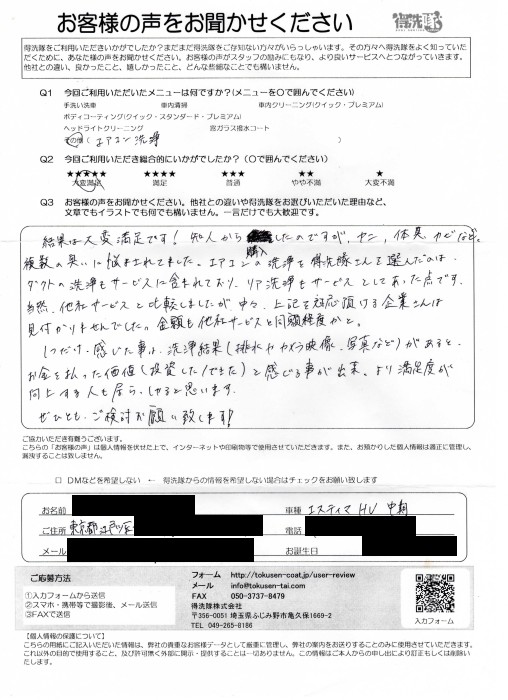 お客様の声をお聞かせください 得洗隊
得洗隊をご利用いただきいかがでしたか？まだまだ得洗隊をご存知ない方々がいらっしゃいます。その方々へ得洗隊をよく知っていた
だくために、あなた様の声をお聞かせください。お客様の声がスタッフの励みにもなり、より良いサービスへとつながっていきます。
他社との違い、良かったこと、嬉しかったこと、どんな些細なことでも構いません。
Q1 今回ご利用いただいたメニューは何ですか？（メニューを○で囲んでください）
手洗い洗車 車内清掃 車内クリーニング（クイック・プレミアム）
ボディコーティング（クイック・スタンダード・プレミアム）
ヘッドライトクリーニング 窓ガラス撥水コート
その他（エアコン洗浄 ）
Q2 今回ご利用いただき総合的にいかがでしたか？（○で囲んでください）
★★★★★ ★★★★ ★★★ ★★ ★
大変満足 満足 普通 やや不満 大変不満
Q3 お客様の声をお聞かせください。他社との違いや得洗隊をお選びいただいた理由など、
文章でもイラストでも何でも構いません。一言だけでも大歓迎です。
結果は大変満足です！知人から購入したのですが、ヤニ、体臭、カビなど、
複数の臭いに悩まされてました。エアコンの洗浄を得洗隊さんを選んだのは、
ダクトの洗浄もサービスに含まれており、リア洗浄もサービスとしてあった点です。
当然、他社サービスと比較しましたが中々、上記を対応頂ける企業さんは
見付かりませんでした。金額も他社サービスと同額程度かと。
1つだけ、感じた事は、洗浄結果（排水やカメラ映像、写真など）があると、
お金を払った価値（投資した/できた）と感じる事が出来、より満足度が
向上する人も居らっしゃると思います。
ぜひとも、ご検討お願い致します！
ご協力いただき有難うございます。
こちらの「お客様の声」は個人情報を伏せた上で、インターネットや印刷物等で使用させていただきます。また、お預かりした個人情報は適正に管理し、
漏洩することは致しません。
□ DMなどを希望しない ← 得洗隊からの情報を希望しない場合はチェックをお願い致します
お名前 車種 エスティマ HV 中期
ご住所 東京都江戸川区 電話
メール お誕生日
ご応募方法
①入力フォームから送信
②スマホ・携帯等で撮影後、メール送信
③FAXで送信
フォーム http://tokusen-coat.jp/user-review
メール info@tokusen-tai.com
FAX 050-3737-8479
得洗隊株式会社
〒356-0051 埼玉県ふじみ野市亀久保1669-2
TEL 049-265-8186
入力フォーム
【個人情報の保護について】
こちらの用紙にご記入いただいた情報は、弊社の貴重なお客様データとして厳重に管理し、弊社の案内をお送りすることのみに使用させていただきます。
これ以外の目的で使用すること、及び許可無く外部に開示・提供することは一切ありません。この情報はご本人からの申し出により訂正もしくは削除い
たします。